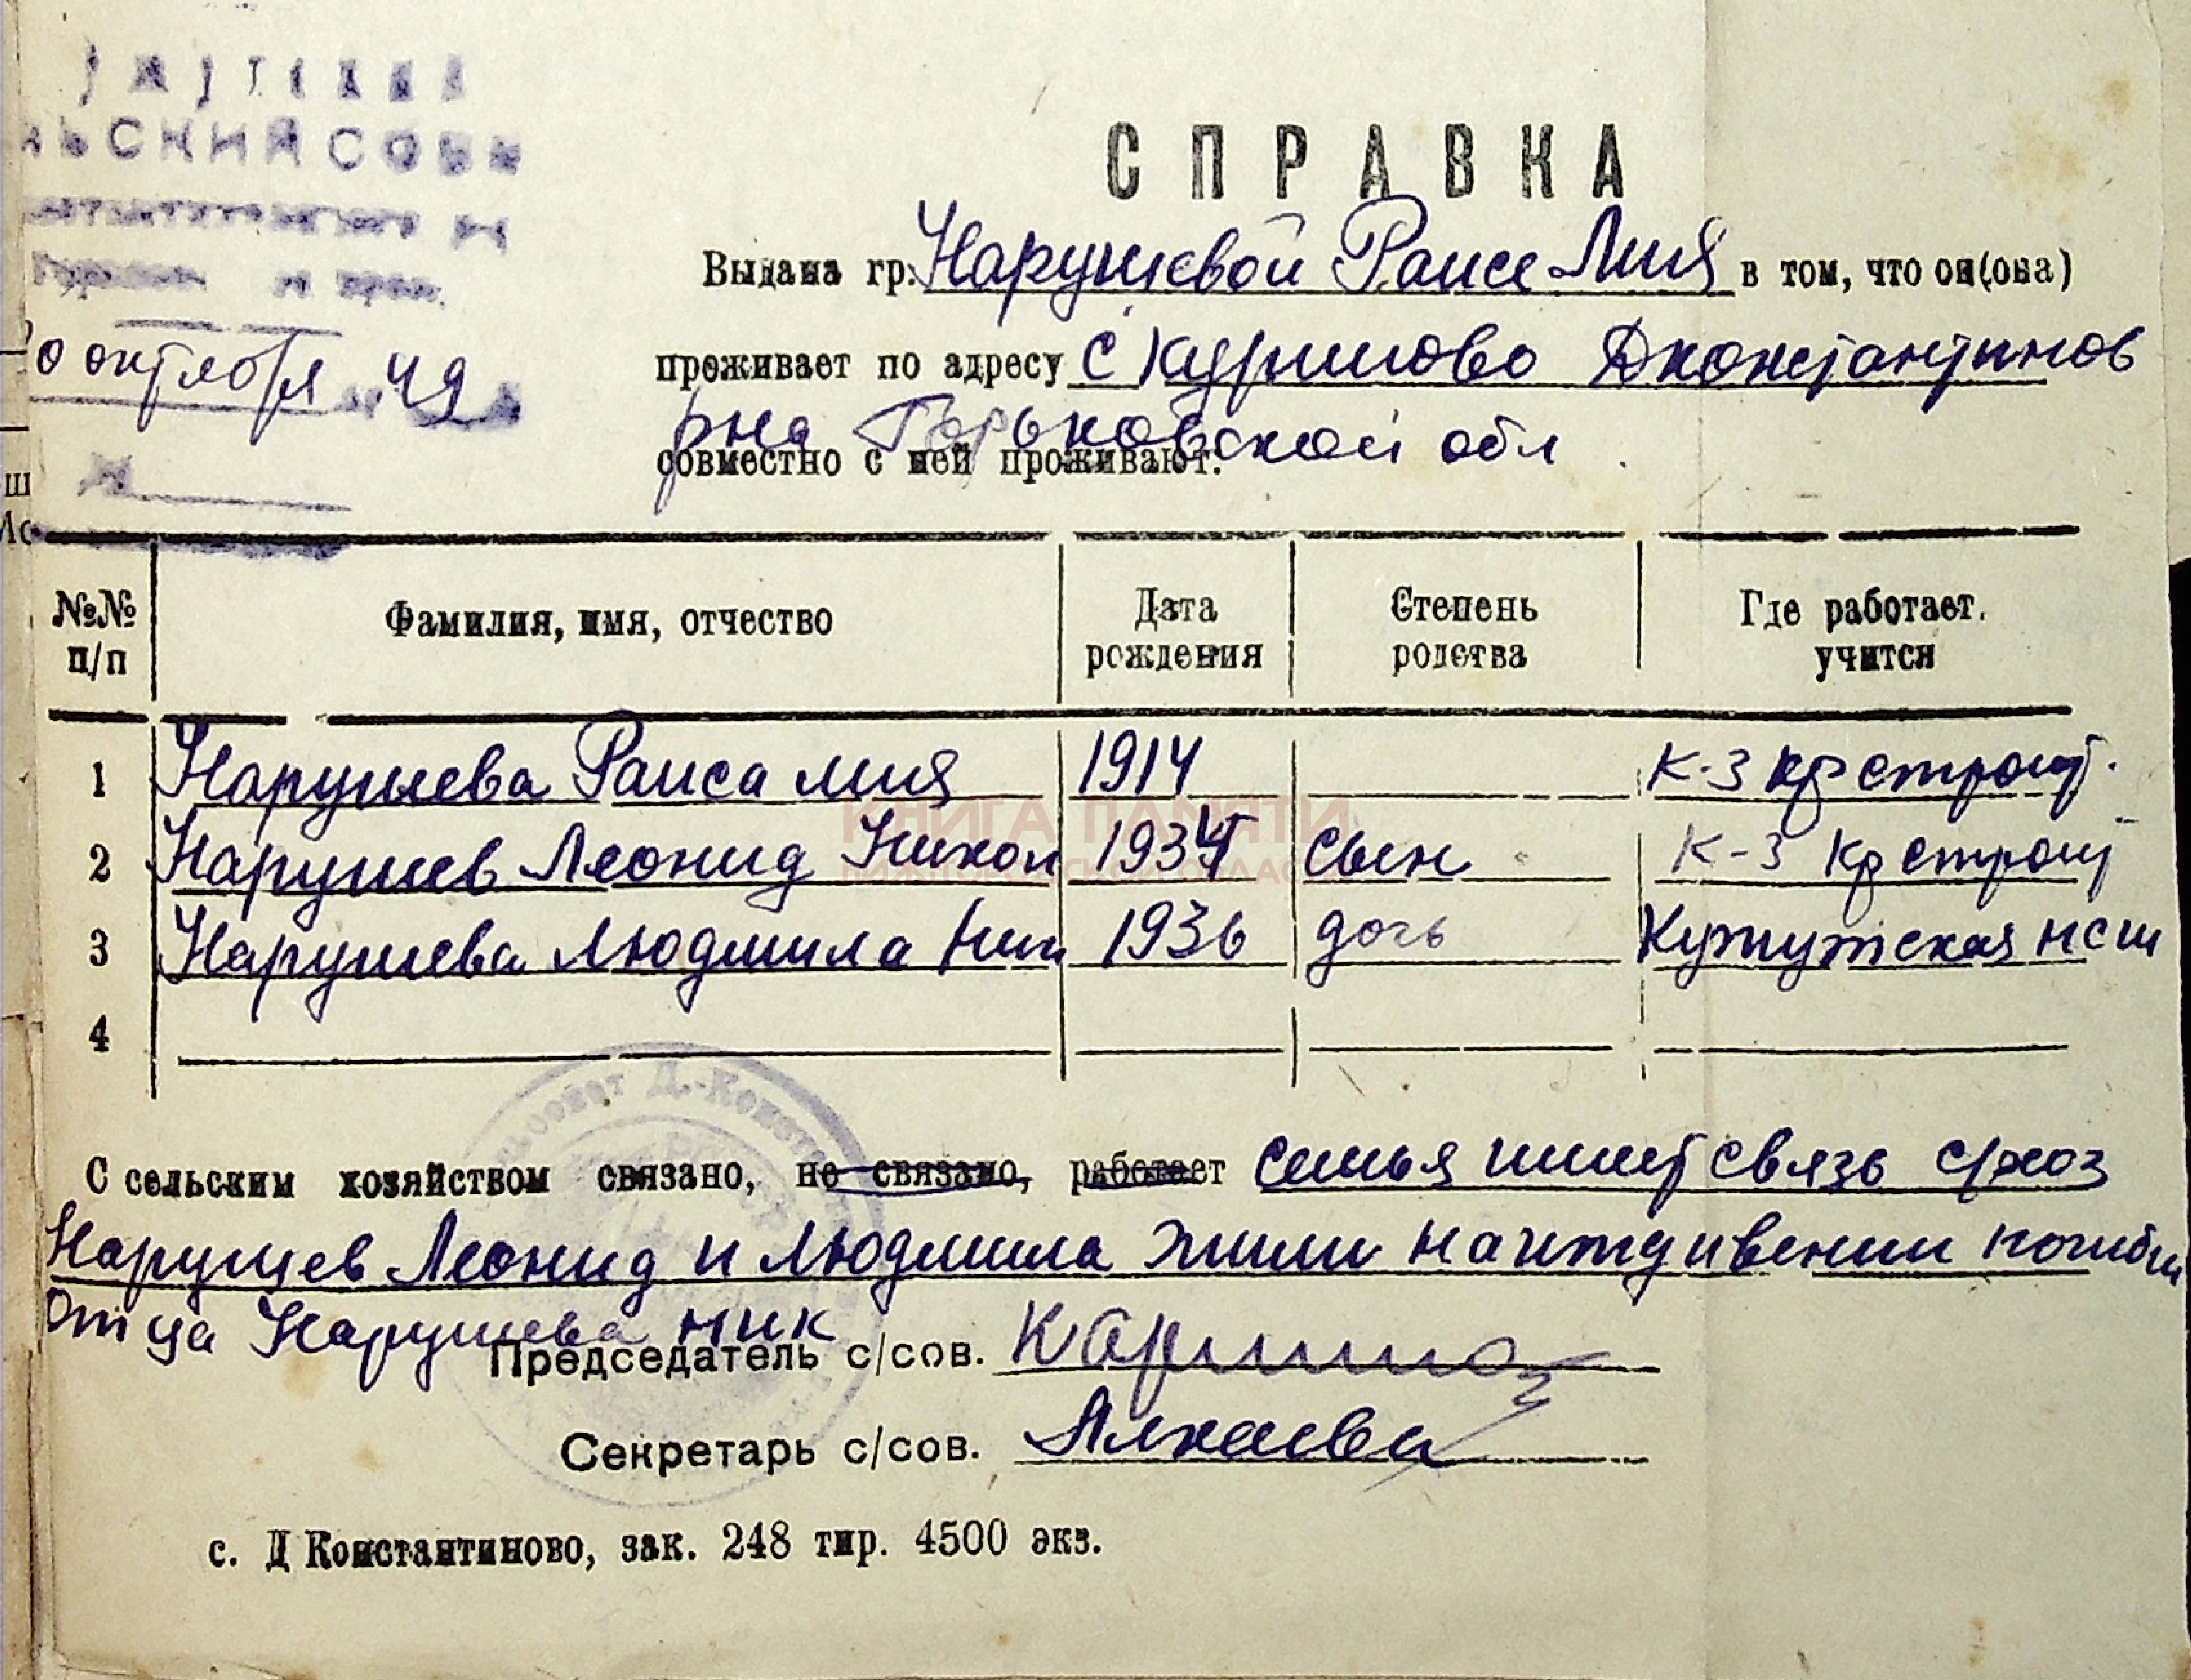 ЬСКИЙ СОВЕ
0 октября 49
СПРАВКА
Выдана гр. Нарушевой Раисе Мия в том, что он(она)
проживает по адресу с Кудришово Дконстантинов
рна Горьковской обл
совместно с ней проживают:
№№ п/п
Фамилия, имя, отчество
Дата рождения
Степень родства
Где работает. учится
1 Нарушева Раиса Мия 1914 К-з кр строит.
2 Нарушев Леонид Никол 1934 сын К-з кр строит
3 Нарушева Людмила Ник 1936 дочь Кужутская нсш
4
КНИГА ПАМЯТИ
НИЖЕГОРОДСКОЙ ОБЛАСТИ
ьсовет Д.-Конст
С сельским хозяйством связано, не связано, работает семья имеет связь схоз
Нарушев Леонид и Людмила жили на иждивении погибш
отца Нарушева ник
Председатель с/сов.
Секретарь с/сов.
с. Д Константиново, зак. 248 тир. 4500 экз.